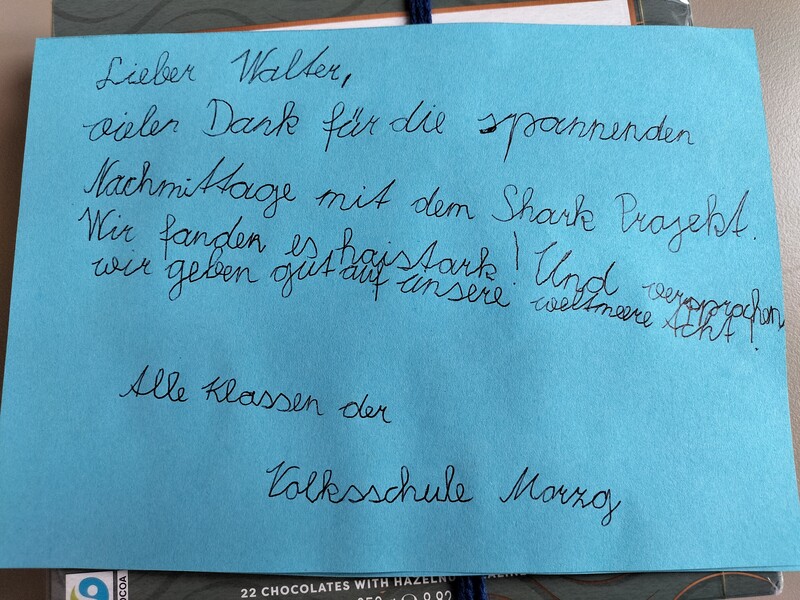 Lieber Walter,
vielen Dank für die spannenden
Nachmittage mit dem Shark Projekt.
Wir fanden es haistark! Und versprochen
wir geben gut auf unsere weltmeere Acht!
Alle Klassen der
Volksschule Marzog
22 CHOCOLATES WITH HAZELNU
COCOA